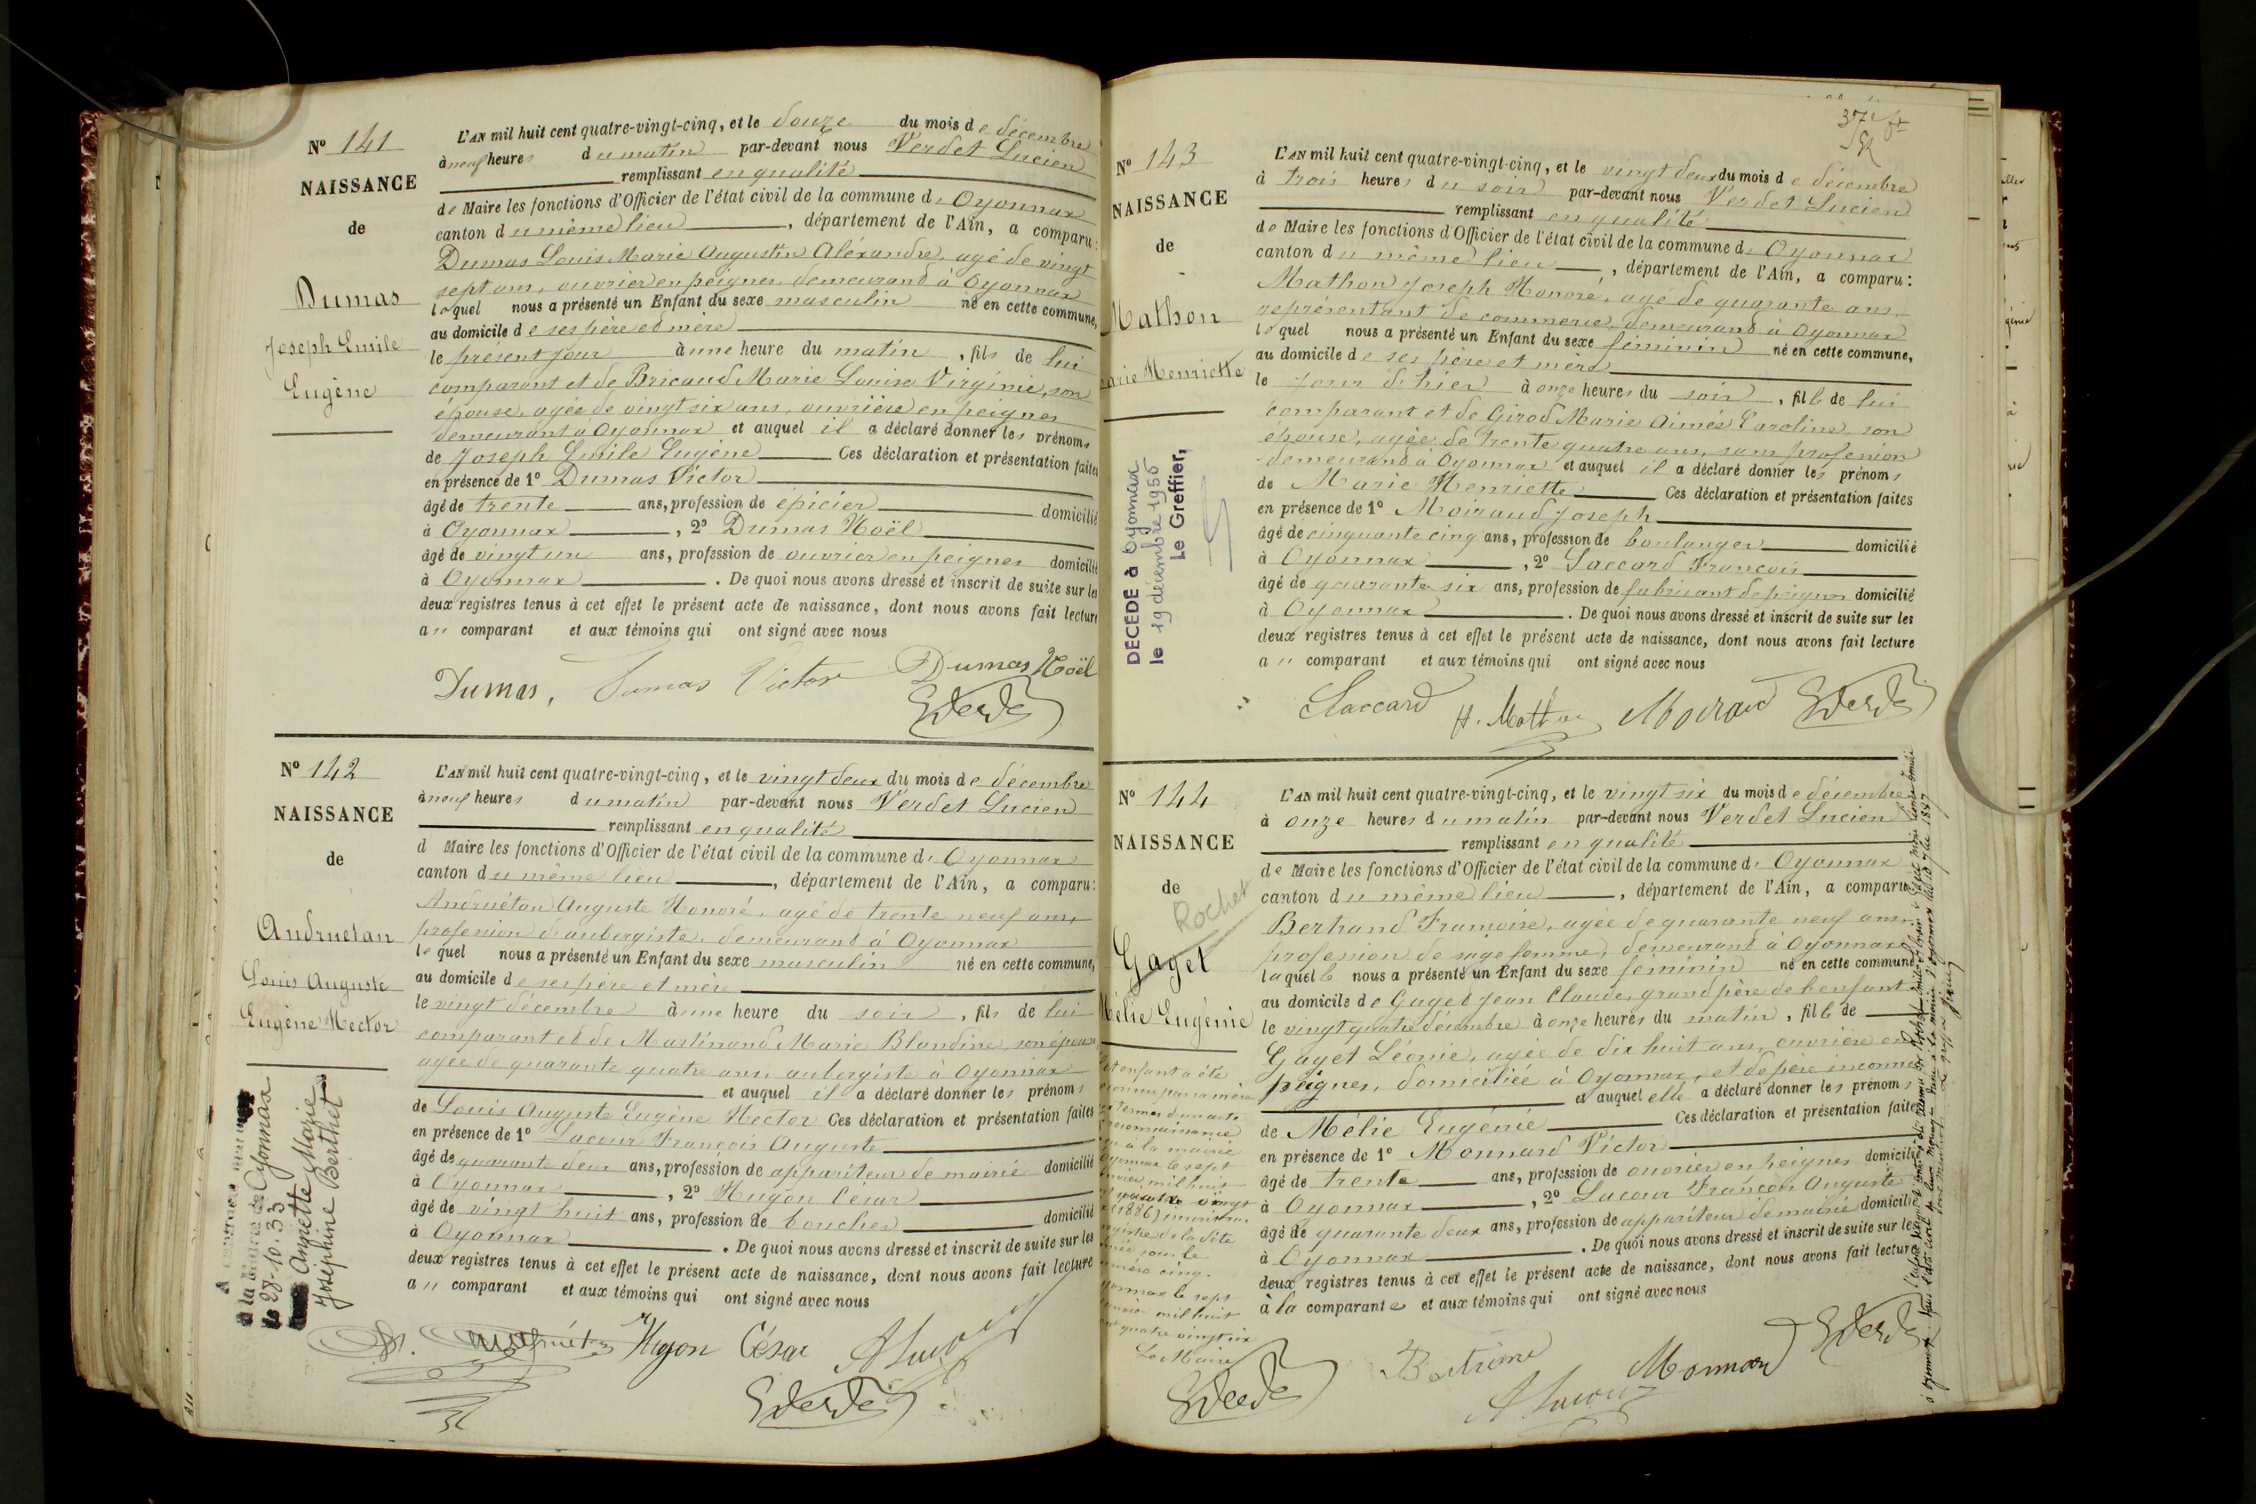 Nº 141
NAISSANCE
de
Dumas
Joseph Emile
Eugène
L'AN mil huit cent quatre-vingt-cinq, et le douze du mois de décembre
à neuf heures du matin par-devant nous Verdet Lucien
remplissant en qualité
de Maire les fonctions d'Officier de l'état civil de la commune d'Oyonnax
canton du même lieu, département de l'Ain, a comparu:
Dumas Louis Marie Augustin Aléxandre, agé de vingt
sept ans, ouvrier en peignes, demeurant à Oyonnax
lequel nous a présenté un Enfant du sexe masculin né en cette commune,
au domicile de ses père et mère
le présent jour à une heure du matin, fils de lui
comparant et de Bricaud Marie Louise Virginie, son
épouse, agée de vingt six ans, ouvrière en peignes
demeurant à Oyonnax et auquel il a déclaré donner les prénoms
de Joseph Emile Eugène Ces déclaration et présentation faites
en présence de 1º Dumas Victor
âgé de trente ans, profession de épicier domicilié
à Oyonnax, 2º Dumas Noël
âgé de vingt un ans, profession de ouvrier en peignes domicilié
à Oyonnax. De quoi nous avons dressé et inscrit de suite sur les
deux registres tenus à cet effet le présent acte de naissance, dont nous avons fait lecture
au comparant et aux témoins qui ont signé avec nous
Dumas, Dumas Victor Dumas Noël
Nº 142
NAISSANCE
de
Andruétan
Louis Auguste
Eugène Hector
à la mairie de Oyonnax
le 28-10-33
Anzette Marie
Joséphine Berthet
L'AN mil huit cent quatre-vingt-cinq, et le vingt deux du mois de décembre
à neuf heures du matin par-devant nous Verdet Lucien
remplissant en qualité
d Maire les fonctions d'Officier de l'état civil de la commune d'Oyonnax
canton du même lieu, département de l'Ain, a comparu:
Andruétan Auguste Honoré, agé de trente neuf ans,
profession d'aubergiste, demeurant à Oyonnax
lequel nous a présenté un Enfant du sexe masculin né en cette commune,
au domicile de ses père et mère
le vingt décembre à une heure du soir, fils de lui
comparant et de Martinand Marie Blandine, son épouse
agée de quarante quatre ans, aubergiste à Oyonnax
et auquel il a déclaré donner les prénoms
de Louis Auguste Eugène Hector Ces déclaration et présentation faites
en présence de 1º Lacour François Auguste
âgé de quarante deux ans, profession de appariteur de mairie domicilié
à Oyonnax, 2º Hugon César
âgé de vingt huit ans, profession de boucher domicilié
à Oyonnax. De quoi nous avons dressé et inscrit de suite sur les
deux registres tenus à cet effet le présent acte de naissance, dont nous avons fait lecture
au comparant et aux témoins qui ont signé avec nous
Hugon César
Nº 143
NAISSANCE
de
Mathon
Marie Henriette
DÉCÉDÉ à Oyonnax
le 19 décembre 1956
Le Greffier,
L'AN mil huit cent quatre-vingt-cinq, et le vingt deux du mois de décembre
à trois heures du soir par-devant nous Verdet Lucien
remplissant en qualité
de Maire les fonctions d'Officier de l'état civil de la commune d'Oyonnax
canton du même lieu, département de l'Ain, a comparu:
Mathon Joseph Honoré, agé de quarante ans,
représentant de commerce, demeurant à Oyonnax
lequel nous a présenté un Enfant du sexe féminin né en cette commune,
au domicile de ses père et mère
le jour d'hier à onze heures du soir, fille de lui
comparant et de Girod Marie Aimée Caroline, son
épouse, agée de trente quatre ans, sans profession
demeurant à Oyonnax et auquel il a déclaré donner les prénoms
de Marie Henriette Ces déclaration et présentation faites
en présence de 1º Moiraud Joseph
âgé de cinquante cinq ans, profession de boulanger domicilié
à Oyonnax, 2º Laccard François
âgé de quarante six ans, profession de fabricant de peignes domicilié
à Oyonnax. De quoi nous avons dressé et inscrit de suite sur les
deux registres tenus à cet effet le présent acte de naissance, dont nous avons fait lecture
au comparant et aux témoins qui ont signé avec nous
Laccard H. Mathon Moiraud
Nº 144
NAISSANCE
de
Rochet
Gaget
Mélie Eugénie
L'AN mil huit cent quatre-vingt-cinq, et le vingt six du mois de décembre
à onze heures du matin par-devant nous Verdet Lucien
remplissant en qualité
de Maire les fonctions d'Officier de l'état civil de la commune d'Oyonnax
canton du même lieu, département de l'Ain, a comparu
Bertrand Françoise, agée de quarante neuf ans,
profession de sage femme, demeurant à Oyonnax
laquelle nous a présenté un Enfant du sexe féminin né en cette commune,
au domicile de Gaget Jean Claude, grand père de l'enfant
le vingt quatre décembre à onze heures du matin, fille de
Gaget Léonie, agée de dix huit ans, ouvrière en
peignes, domiciliée à Oyonnax, et de père inconnu
et auquel elle a déclaré donner les prénoms
de Mélie Eugénie Ces déclaration et présentation faites
en présence de 1º Monnard Victor
âgé de trente ans, profession de ouvrier en peignes domicilié
à Oyonnax, 2º Lacour François Auguste
âgé de quarante deux ans, profession de appariteur de mairie domicilié
à Oyonnax. De quoi nous avons dressé et inscrit de suite sur les
deux registres tenus à cet effet le présent acte de naissance, dont nous avons fait lecture
à la comparante et aux témoins qui ont signé avec nous
Monnard
Le Maire